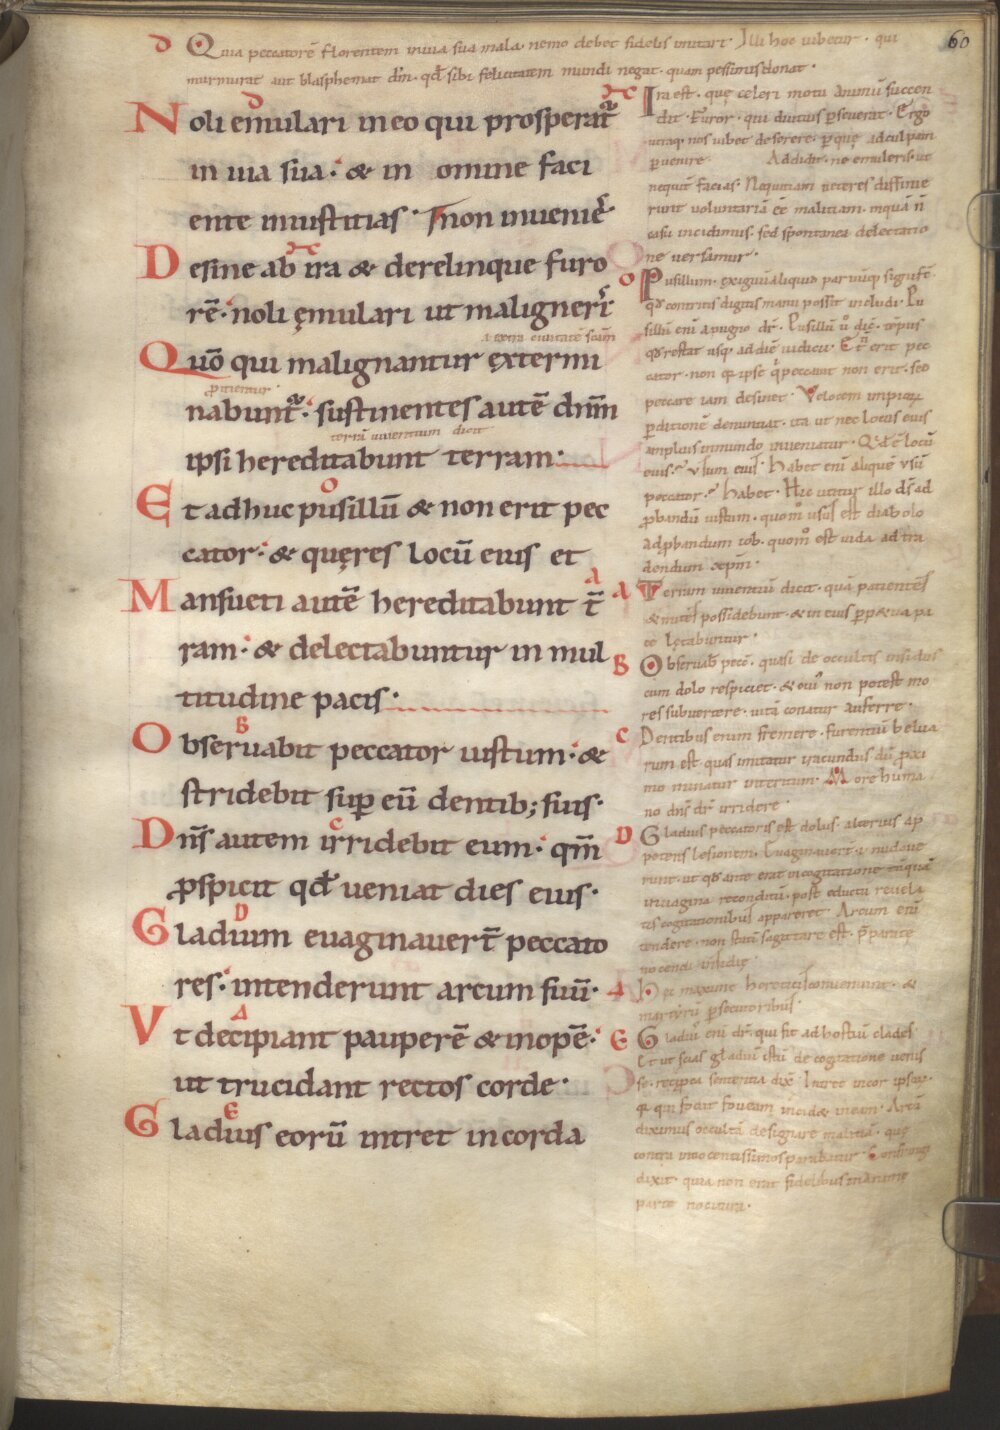 60
d Quia peccatorē florentem in uia sua mala · nemo debet fidelis imitari · Illi hoc uidetur · qui
murmurat aut blasphemat dn̄m · qd̄ sibi felicitatem mundi negat · quam pessimis donat ·
Noli emulari in eo qui prosperat᷑
in uia sua · & in omine faci
ente iniustitias · non inueniẽ
Desine ab ira & derelinque furo
rē · noli ęmulari ut maligneri᷑
a terra ciuitatē
Quō qui malignantur extermi
nabunt᷑ · sustinentes autē dnm̄
terrā uiuentium dicit
ipsi hereditabunt terram ·
Et adhuc pusillū & non erit pec
cator · & quęres locū eius et
Mansueti autē hereditabunt t̄
ram · & delectabuntur in mul
titudine pacis ·
Obseruabit peccator iustum · &
stridebit suꝑ eū dentib; suis ·
Dn̄s autem irridebit eum · qm̄
ꝓspicit qd̄ ueniat dies eius ·
Gladium euaginauert̄ peccato
res · intenderunt arcum suū ·
Vt decipiant pauperē & inopē ·
ut trucidant rectos corde ·
Gladius eorū intret in corda
Ira est · quę celeri motu animū succen
dit · Furor · qui diutius perseuerat · Ergo
utraq nos iubet deserere · ꝑ quę ad culpam
ꝑuenire · Addidit · ne emuleris · ut
nequit̄ facias · Nequitiam ueteres diffinie
runt uoluntariā eē malitiam · in quā n̄
casu incidimus · sed spontanea delectatio
ne uersamur ·
o Pusillum · exiguū aliquid paruūq significat̄ ·
qd̄ contritis digitis manu possit includi · Pu
sillū enī a pugno dr̄ · Pusillū ů dic̄ · tēpus
qd̄ restat usq ad diē iudicii · Et n̄ erit pec
cator · non q ipse q̇ peccauit non erit · sed
peccare iam desinet · Velocem impioꝝ
ꝑditionē denuntiat · ita ut nec locus eius
amplius in mundo inueniatur · Qd ē locū
eius · Vsum eius · Habet enī aliquē usū
peccator · Habet · Hic utitur illo ds̄ ad
ꝓbandū iustum · quom̊ usus est diabolo
ad ꝓbandum iob · quom̊ est iuda ad tra
dendum xp̄m ·
a Terram uiuentiū dicit · quā patientes
& mites possidebunt · & in eius ꝑpetua pa
ce lętabuntur ·
B Obseruab̄ pecc̄ · quasi de occultis insidiis
cum dolo respiciet · & cui᷒ non potest mo
res subuertere · uitā conatur auferre ·
c Dentibus enim fremere · furentiū belua
rum est · quas imitatur iracundus dū ꝓxi
mo minatur interitum · More huma
no dn̄s dr̄ irridere ·
D Gladius peccatoris est dolus · alterius ap
petens lesionem · Euaginauert̄ i nudaue
runt · ut qd̄ ante erat in cogitatione tāquā
in uagina reconditū · post eductū reuela
tis cogitationibus appareret · Arcum enī
tendere · non statī sagittare est · sꝫ parare
nocendi insidię ·
Δ Hec maxime hereticis conueniunt · &
martyrū ꝑsecutoribus ·
E Gladius enī dr̄ · qui fit ad hostiū clades ·
Et ut scias gladiū istū de cogitatione uenis
se · recipca sententia dix̄ · Intret in cor ipsoꝝ ·
q qui facit foueam incidet in eam · Arcū
diximus occultā designare malitiā · quę
contra innocentissimos parabatur · Confringi
dixit · quia non erat fidelibus in anime
parte nocitura ·